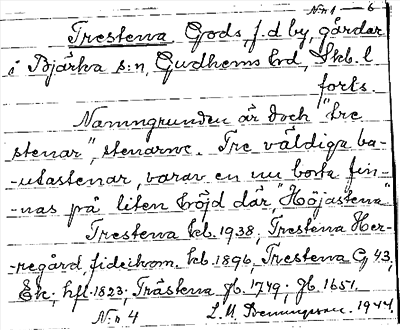 No 1 – 6
Trestena Gods, f.d by, gårdar
i Bjärka s:n, Gudhems hd, Skb. l
forts.
Namngrunden är doch "tre
stenar", stenarne. Tre väldiga ba-
-utastenar, varav en nu borta fin-
-nas på liten höjd där, "Höjastena"
Trestena kb. 1938, Trestena Her-
-regård, fideikom. kb. 1896, Trestena G 43,
Ek. hfl. 1823, Trästena jb. 1719, jb. 1651.
No 4 L. M. 1944